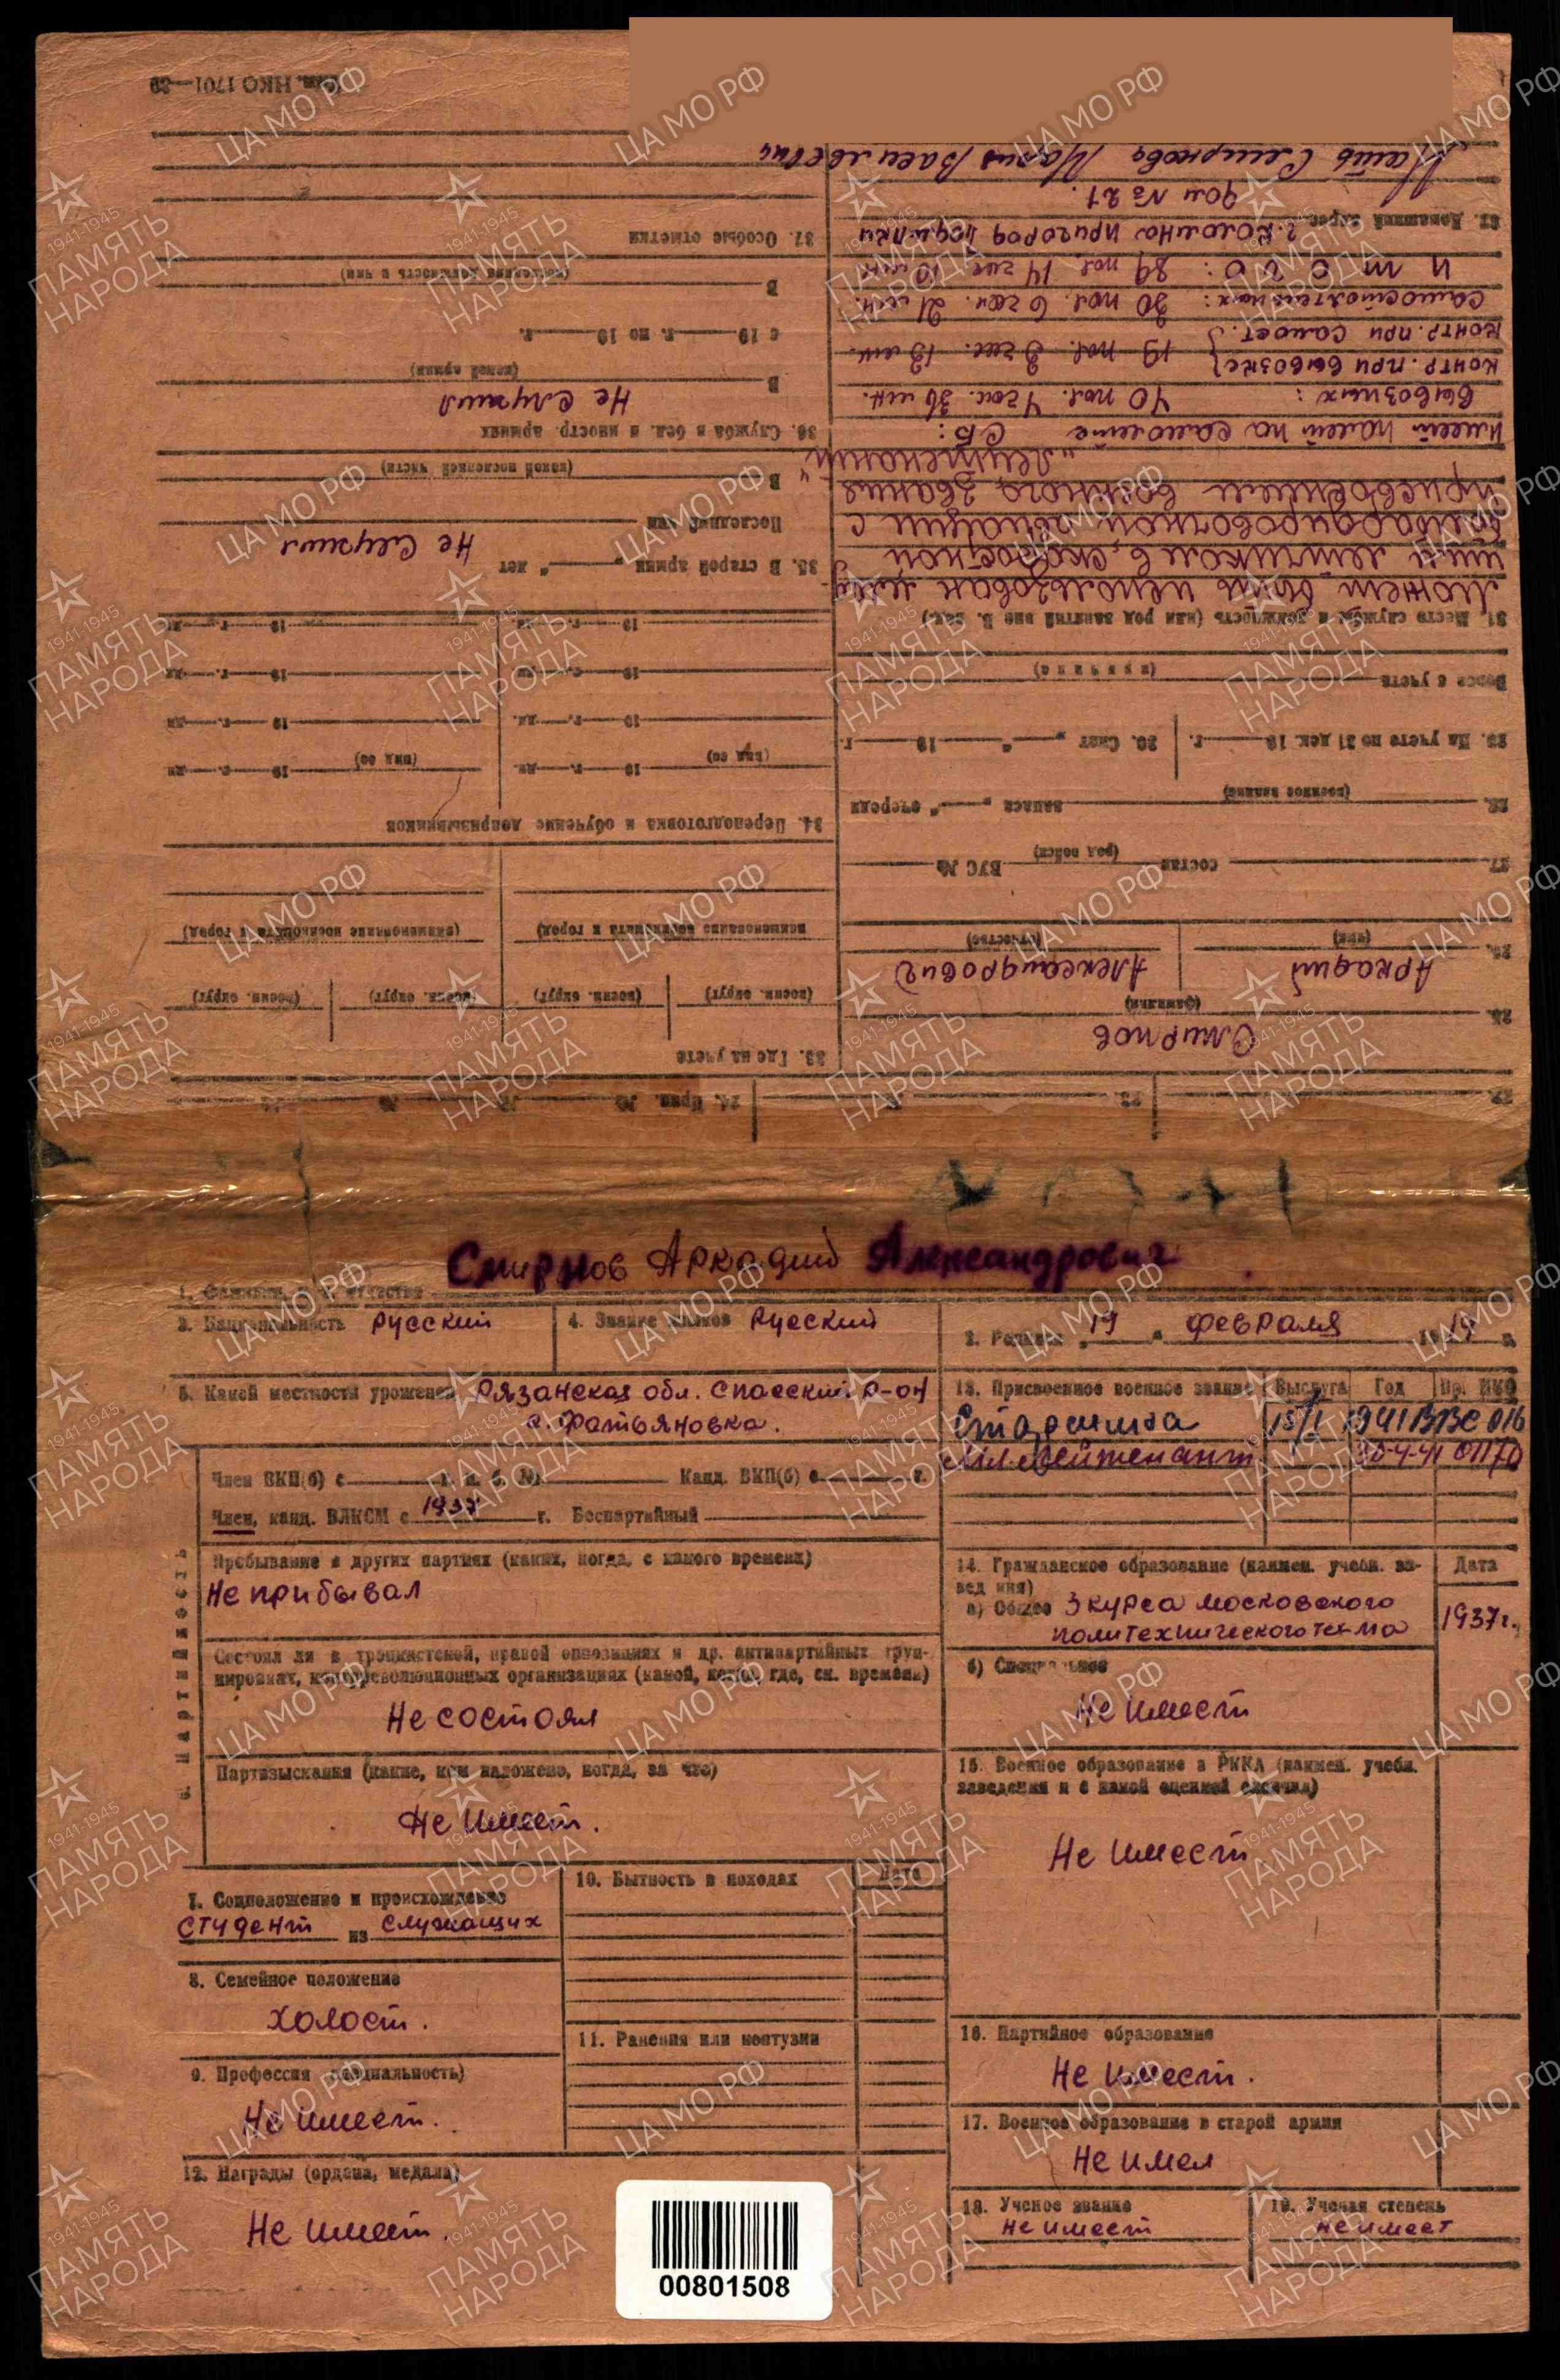 Смирнов Аркадий Александрович
1. Фамилия, отчество
3. Национальность русский
4. Звание языков Русский
2. Родился „19“ февраля 1919 г.
5. Какой местности уроженец Рязанская обл. Спасский р-он
с. Фатьяновка.
13. Присвоенное военное звание Выслуга Год Пр. НКО
Старшина 15/I 1941 ВВС 016
Мл. лейтенант 30-4-41 0117
6. Партийность
Член ВКП(б) с г. п. б. № Канд. ВКП(б) с г.
Член, канд. ВЛКСМ с 1937 г. Беспартийный
Пребывание в других партиях (каких, когда, с какого времени)
Не прибывал
Состоял ли в троцкистской, правой оппозициях и др. антипартийных груп-
пировках, контрреволюционных организациях (какой, когда, где, ск. времени)
Не состоял
Партвзыскания (какие, кем наложено, когда, за что)
Не имеет.
14. Гражданское образование (наимен. учебн. за- Дата
вед ния)
а) Общее 3 курса московского
политехнического тех-ма 1937г.
б) Специальное
Не имеет
15. Военное образование в РККА (наимен. учебн.
заведения и с какой оценкой окончил)
Не имеет
7. Соцположение и происхождение
студент из служащих
8. Семейное положение
холост.
9. Профессия (специальность)
Не имеет.
10. Бытность в походах Дата
11. Ранения или контузии
12. Награды (ордена, медали)
Не имеет.
16. Партийное образование
Не имеет.
17. Военное образование в старой армии
Не имел
18. Ученое звание
не имеет
19. Ученая степень
не имеет
00801508
22. 23. 24. Прик. № № № №
25. Смирнов
(фамилия)
26. Аркадий Александрович
(имя) (отчество)
27. состав ВУС №
(род войск)
28. запаса „ “ очереди
(военное звание)
29. На учете по 31 дек. 19 г. 30. Снят „ “ 19 г.
Вовсе с учета
(причина)
31. Место службы и должность (или род занятий вне В. вед.)
Может быть использован млад
шим летчиком в скоростной
бомбардировочной авиации с
присвоением военного звания
„лейтенант“
Имеет налет на самолете СБ:
вывозных: 40 пол. 4 час. 36 мин.
контр. при вывозке
контр. при самост. 19 пол. 3 час. 13 мин.
самостоятельных: 30 пол. 6 час. 21 мин.
Итого: 89 пол. 14 час. 10 мин.
32. Домашний адрес г. Коломна пригород Подлипки
дом № 21.
Мать Смирнова Мария Васильевна
33. Где на учете
(воен. округ) (воен. округ) (воен. округ) (воен. округ)
(наименование военкомата и город) (наименование военкомата и город)
34. Переподготовка и обучение допризывников
(вид ее) 19 г. дн. (вид ее) 19 г. дн.
19 г. дн. 19 г. дн.
19 г. дн. 19 г. дн.
19 г. дн. 19 г. дн.
35. В старой армии „ “ лет Не служил
Последний чин
В
(какой последней части)
36. Служба в бел. и иностр. армиях
Не служил
В
(какой армии)
с 19 г. по 19 г.
В
(последняя должность и чин)
37. Особые отметки
Изм. НКО 1701—39
ЦА МО РФ
1941-1945
ПАМЯТЬ
НАРОДА